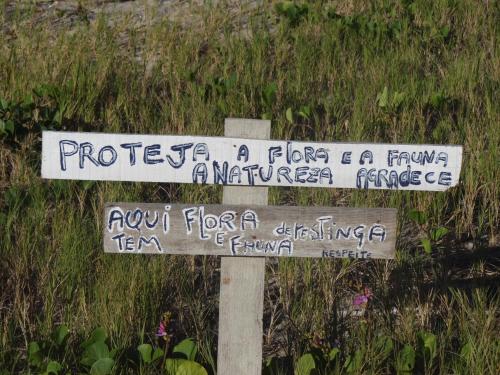 PROTEJA A FLORA E A FAUNA
A NATUREZA AGRADECE
AQUI FLORA de RESTINGA
TEM E FAUNA
RESPEITE